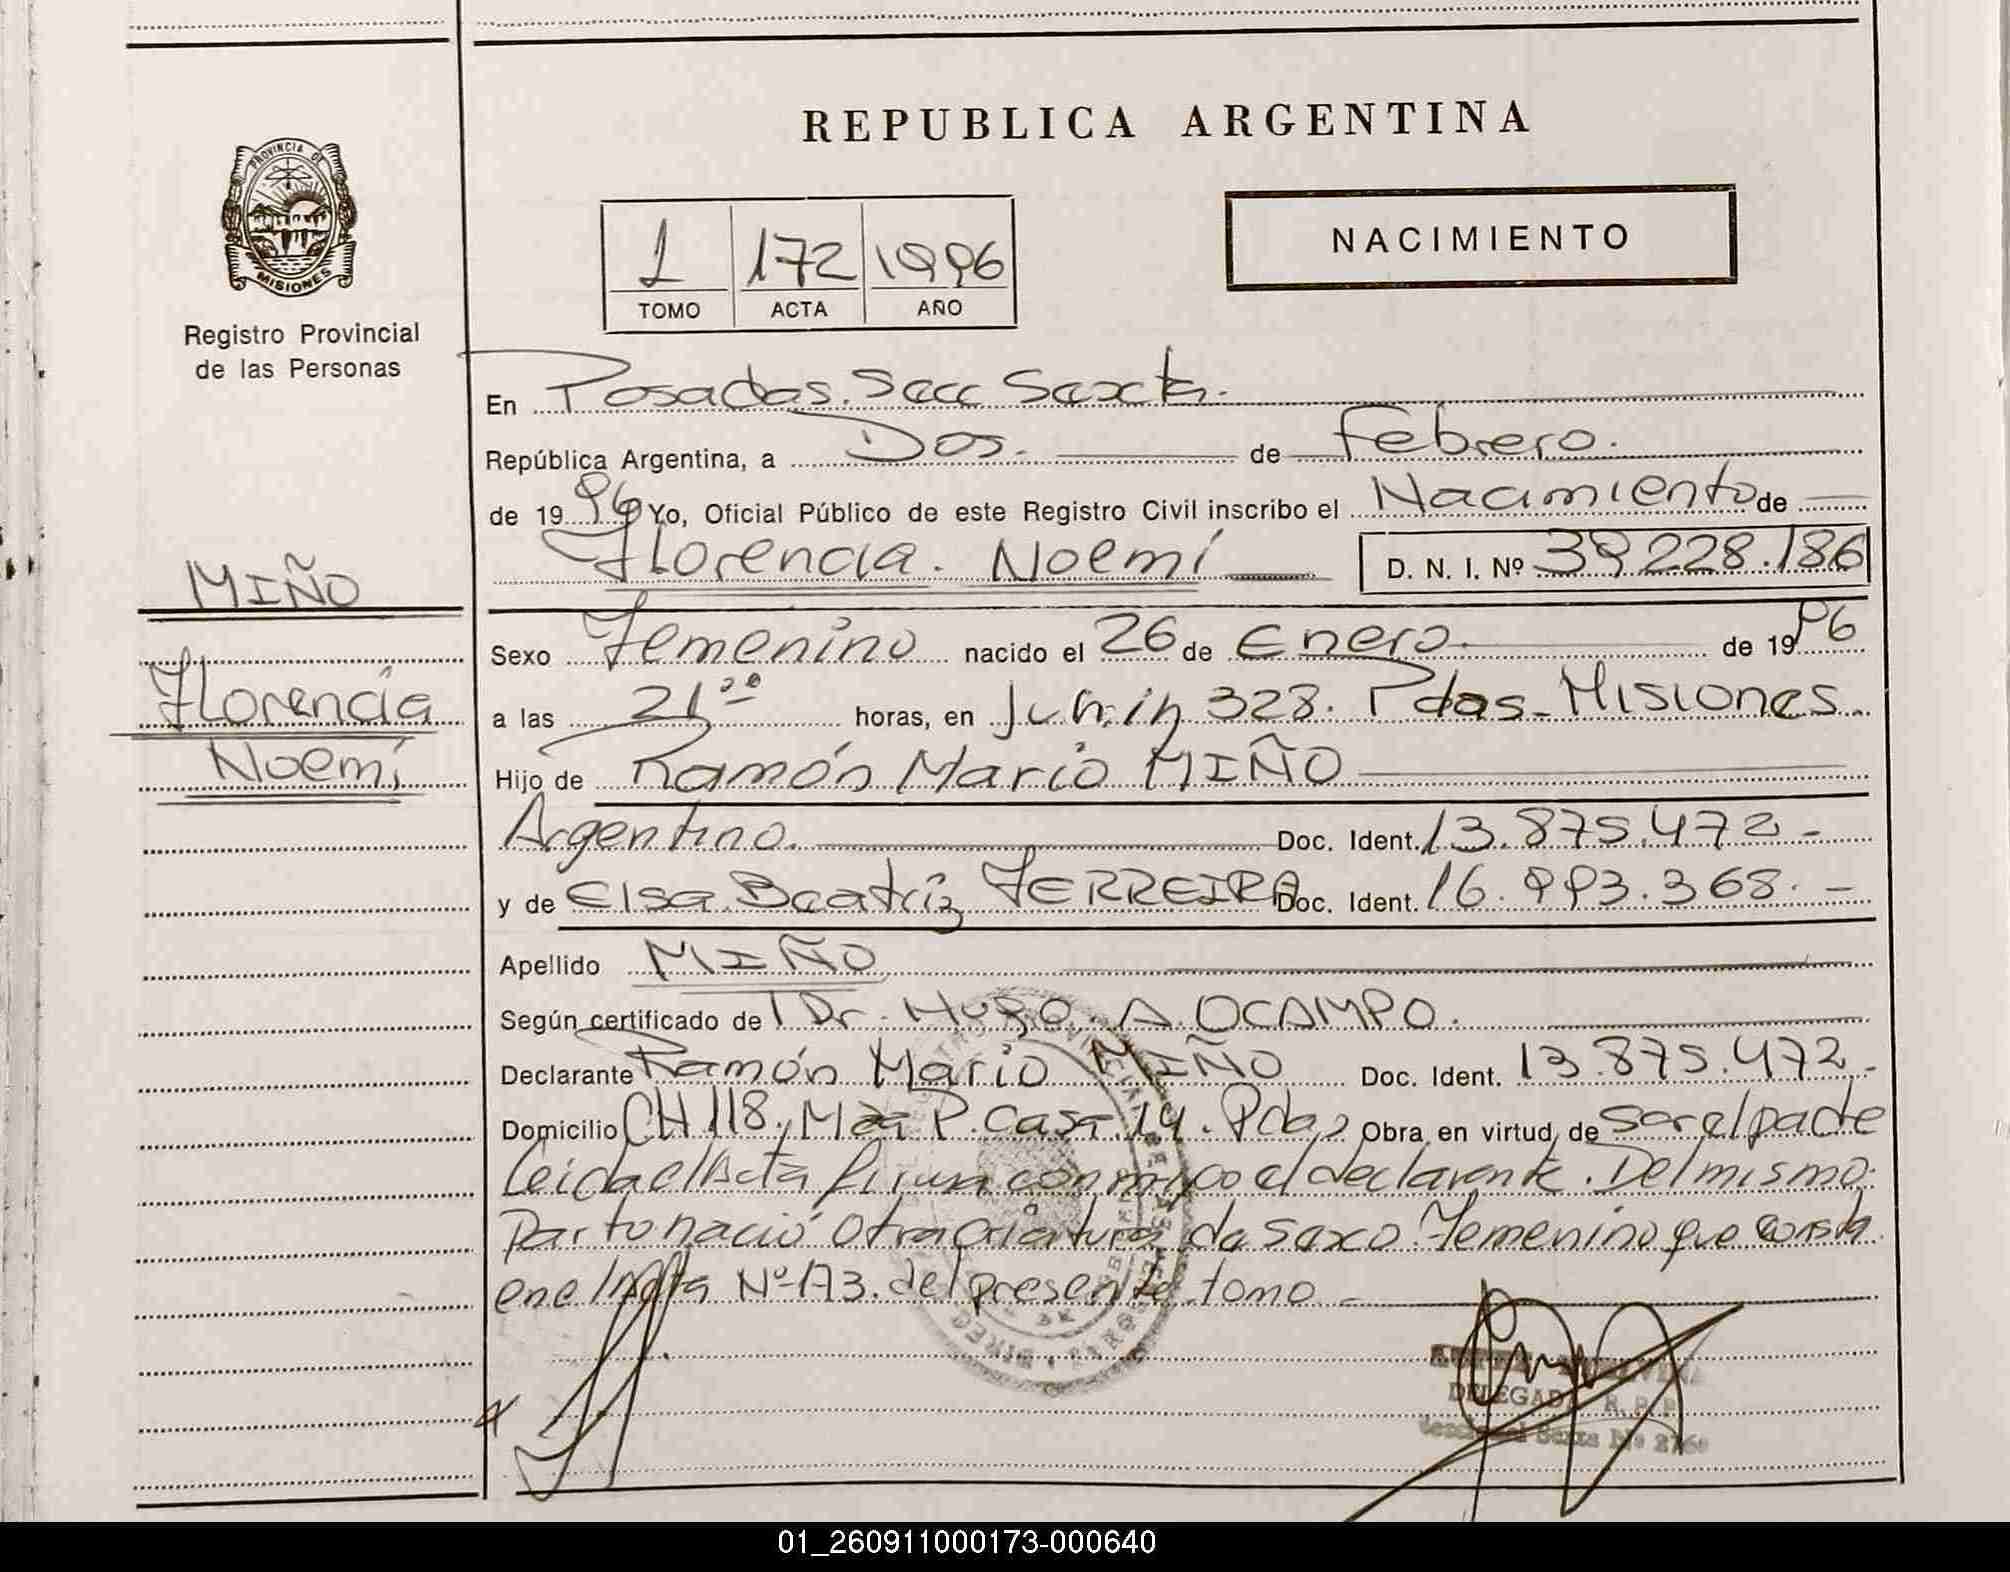 REPUBLICA ARGENTINA
PROVINCIA DE
MISIONES
Registro Provincial
de las Personas
1 172 1996
TOMO ACTA AÑO
NACIMIENTO
En Posadas. Secc Sexta.
República Argentina, a Dos. de Febrero.
de 19 96 Yo, Oficial Público de este Registro Civil inscribo el Nacimiento de
Florencia. Noemí D. N. I. Nº 39228.186
MIÑO
Florencia
Noemí
Sexo Femenino nacido el 26 de Enero. de 19 96
a las 21ºº horas, en Junín 328. Pdas-Misiones.
Hijo de Ramón Mario MIÑO
Argentino. Doc. Ident. 13.875.472-
y de Elsa Beatríz FERREIRA Doc. Ident. 16.993.368.-
Apellido MIÑO
Según certificado de Dr. Hugo A. OCAMPO.
Declarante Ramón Mario MIÑO Doc. Ident. 13.875.472-
Domicilio CH 118. Mza P. Casa 14. Pdas Obra en virtud de ser el padre
Leida el Acta firma conmigo el declarante. Del mismo
Parto nació otra criatura de sexo Femenino que consta
en el Acta Nº 173. del presente tomo-
DELEGADA R. P. P.
Seccional Sexta Nº
01_260911000173-000640